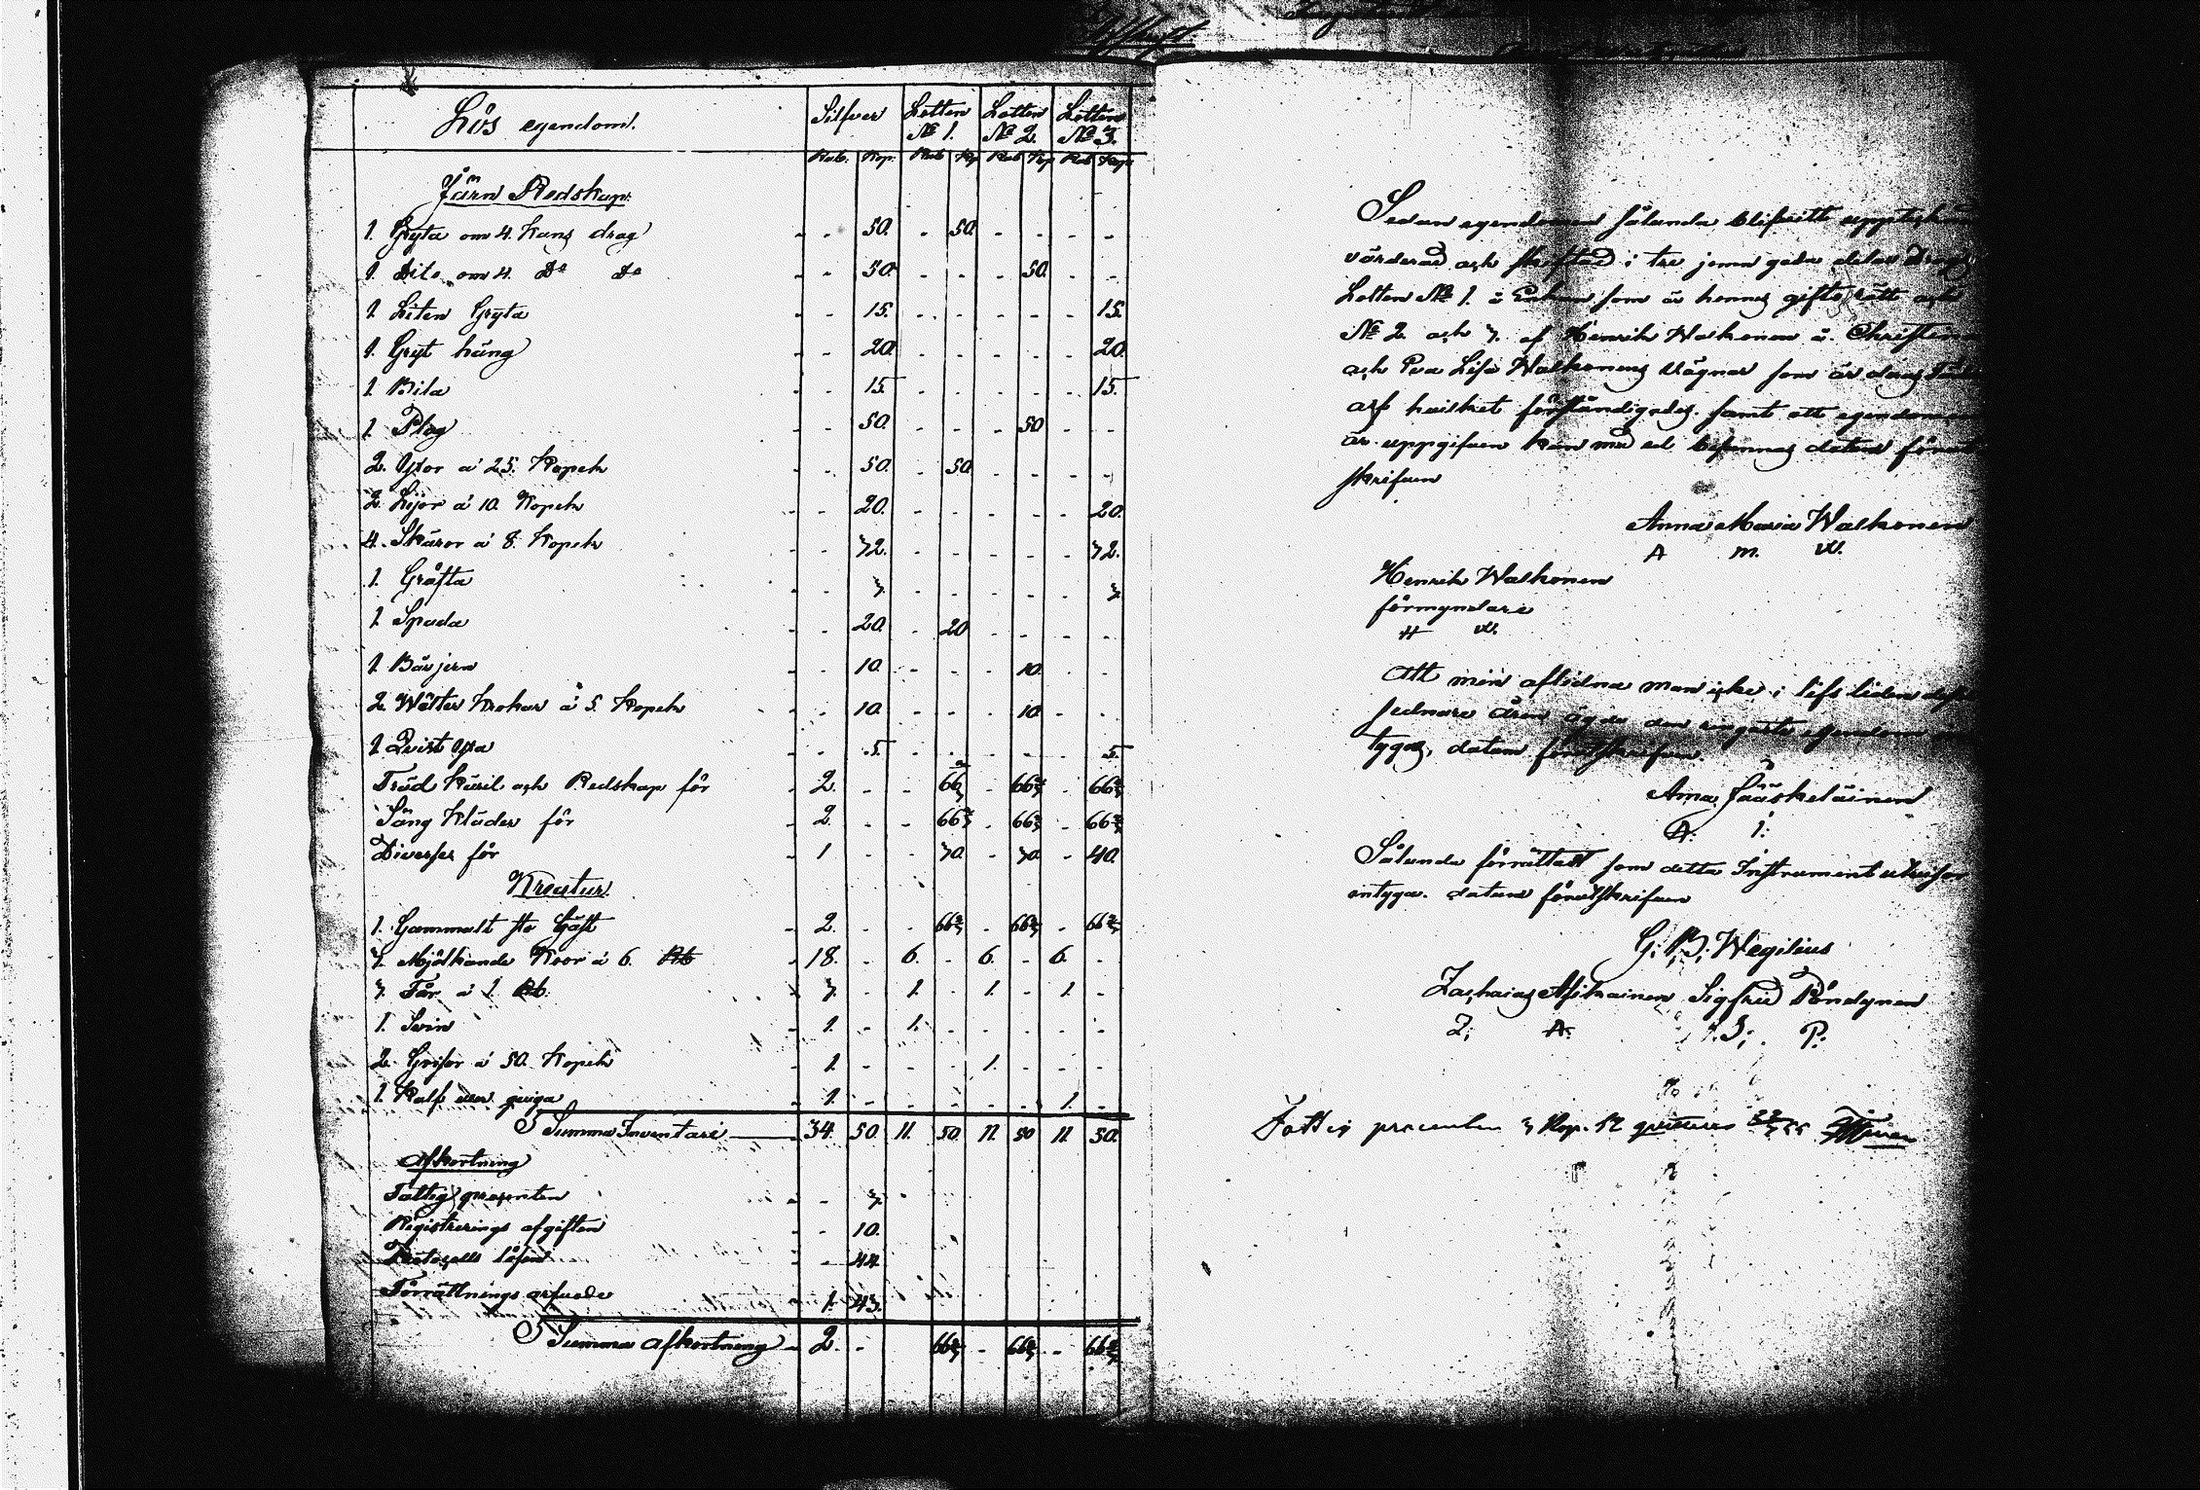 Lös egendom. Silfver Lotten № 1. Lotten № 2. Lotten № 3.
Rub. Kop. Rub Kp Rub Kop Rub Kop
Järn Redskap.
1. Gryta om 4. Kans drag - - 50. - 50. - - - -
1. Dito om 4. Do Do - - 50. - - - 50. - -
1. Liten Gryta - - 15. - - - - - 15.
1. Gryt häng - - 20. - - - - - 20.
1. Bila - - 15. - - - - - 15.
1. Plog - - 50. - - - 50 - -
2. Yxor á 25. Kopek - - 50. - 50. - - - -
2. Lijor á 10. Kopek - - 20. - - - - - 20.
4. Skäror á 8. Kopek - - 32. - - - - - 32.
1. Gräfta - - 3. - - - - - 3
1. Spada - - 20. - 20 - - - -
1. Bärjern - - 10. - - - 10. - -
2. Wätter Krokar á 5. Kopek - - 10. - - - 10. - -
1. Qvist Yxa - - 5. - - - - - 5.
Träd Käril och Redskap för - 2. - - 66⅔ - 66⅔ - 66⅔
Säng Kläder för - 2. - - 66⅔ - 66⅔ - 66⅔
Diverser för - 1 - - 30. - 30. - 40.
Kreatur.
1. Gammalt sto - 2. - - 66⅔ - 66⅔ - 66⅔
3. Mjölkande Koor á 6. Rb - 18. - 6. - 6. - 6. -
3. Får á 1. Rb. - 3. - 1. - 1. - 1. -
1. Svin - 1. - 1. - - - - -
2. Grisar á 50. Kopek - 1. - - - 1. - - -
1. Kalf quiga - 1. - - - - - 1. -
Summa Inventari 34. 50. 11. 50. 11. 50 11. 50.
Afkortning
Fattig procenten - - 3.
Registrerings afgiften - - 10.
Protocolls lösen - - 44.
Förrättnings arfvode - 1. 43.
Summa Afkortning - 2. - 66⅔ - 66⅔ - 66⅔
Sedan egendomen sålunda blifvitt
värderad och skiftad i tre jemn goda delar
Lotten № 1. á Enkan som är hennes giftorätt och
№ 2 och 3. af Henrik Walkonen á Christina
och Eva Lisa Walkonens vägnar som är deras
arf hvilket förständigades. samt att egendomen
är uppgifven kan med ed datum
skrifven
Anna Maria Walkonen
A m. W.
Henrik Walkonen
förmyndare
H W.
Att min aflidna man icke i lifs tiden
sednare åren ägde den ringaste egendom
tygas, datum förutskrifven.
Anna Jääskeläinen
A. J.
Sålunda förrättadt som detta Instrument utvisar
intyga. datum förutskrifven
G. B. Wegelius
Zachaias Asikainen Sigfrid Pöndynen
Z. A. S. P.
Fattig procenten 3 Kop. Sr